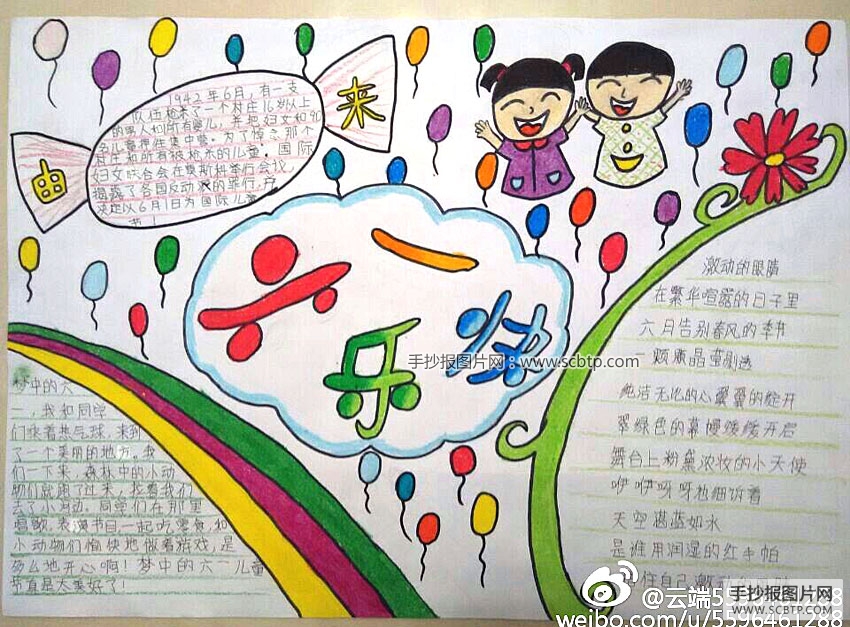 由
来
1942年6月,有一支
队伍枪杀了一个村庄16岁以上
的男人和所有婴儿,并把妇女和90
多名儿童押往集中营。为了悼念那个
村庄和所有被枪杀的儿童。国际
妇女联合会在莫斯科举行会议,
揭露了各国反动派的罪行,并
决定以6月1日为国际儿童
节!
六一
乐快
手抄报图片网:www.scbtp.com
梦中的六
一,我和同学
们乘着热气球,来到
了一个美丽的地方。我
们一下来,森林中的小动
物们就跑了过来,拉着我们
去了小河边。同学们在那里
唱歌、表演节目,一起吃零食,和
小动物们愉快地做着游戏,是
多么地开心啊!梦中的六一儿童
节真是太美好了!
激动的眼睛
在繁华喧嚣的日子里
六月告别春风的季节
一颗颗晶莹剔透
纯洁无比的心灵的绽开
翠绿色的幕幔缓缓开启
舞台上粉黛浓妆的小天使
咿咿呀呀地细诉着
天空湛蓝如水
是谁用润湿的红手帕
住自己激动的
@云端5
weibo.com/u/5596461288
手抄报图片网
WWW.SCBTP.COM